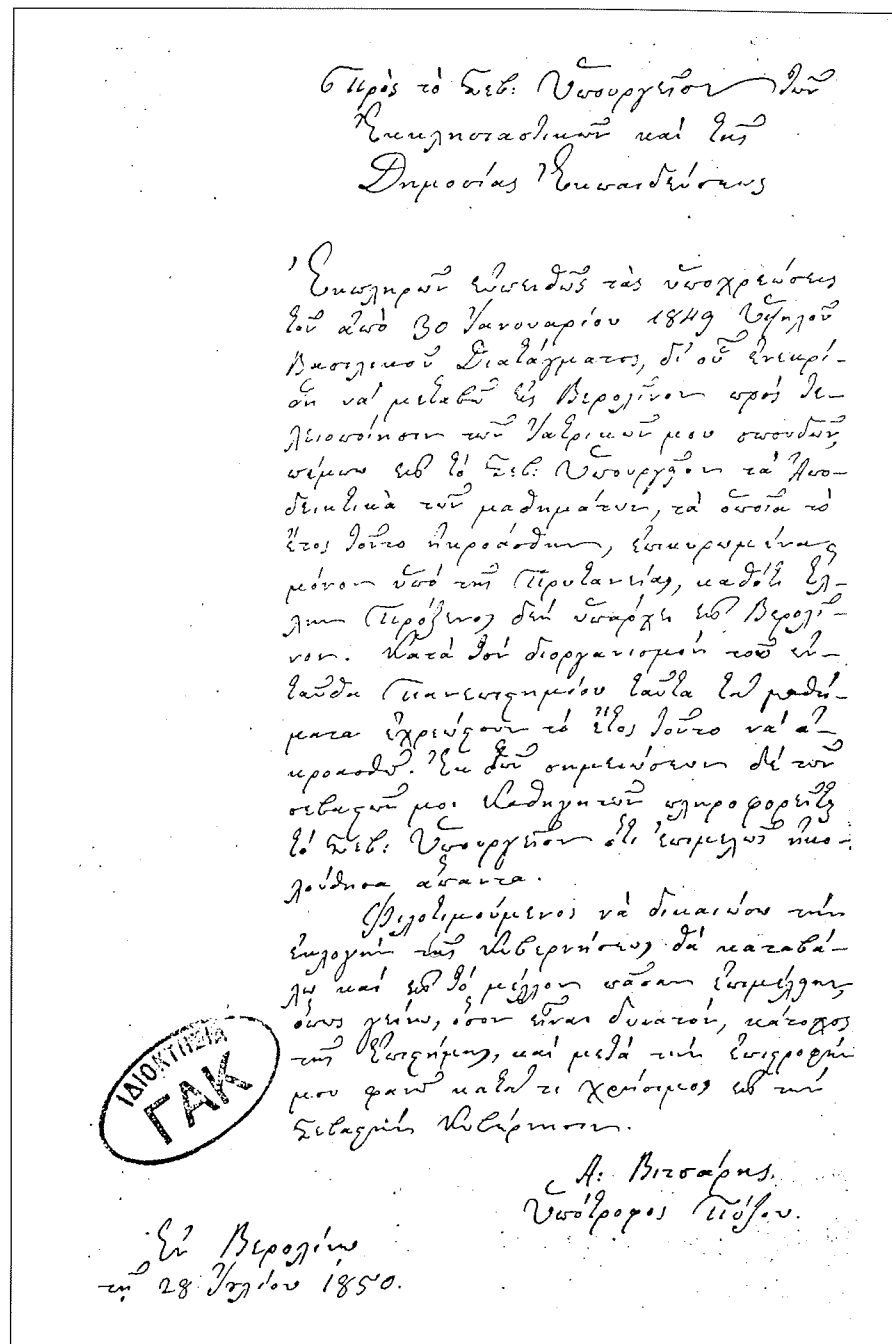 Πρὸς τὸ Σεβ: Ὑπουργεῖον τῶν
Ἐκκλησιαστικῶν καὶ τῆς
Δημοσίας Ἐκπαιδεύσεως
Ἐκπληρῶν εὐπειθῶς τὰς ὑποχρεώσεις
τοῦ ἀπὸ 30 Ἰανουαρίου 1849 Ὑψηλοῦ
Βασιλικοῦ Διατάγματος, δι' οὗ ἐνεκρί-
θη νὰ μεταβῶ εἰς Βερολῖνον πρὸς τε-
λειοποίησιν τῶν Ἰατρικῶν μου σπουδῶν,
πέμπω εἰς τὸ Σεβ: Ὑπουργεῖον τὰ Ἀπο-
δεικτικὰ τῶν μαθημάτων, τὰ ὁποῖα τὸ
ἔτος τοῦτο ἠκροάσθην, ἐπικυρωμένα
μόνον ὑπὸ τῆς Πρυτανείας, καθότι Ἕλ-
λην Πρόξενος δὲν ὑπάρχει εἰς Βερολῖ-
νον. Κατὰ τὸν διοργανισμὸν τοῦ ἐν-
ταῦθα Πανεπιστημίου ταῦτα τὰ μαθή-
ματα ἐχρεώστουν τὸ ἔτος τοῦτο νὰ ἀ-
κροασθῶ. Ἐκ τῶν σημειώσεων δὲ τῶν
σεβαστῶν μοι Καθηγητῶν πληροφορεῖται
τὸ Σεβ: Ὑπουργεῖον ὅτι ἐπιμελῶς ἠκο-
λούθησα ἅπαντα.
Φιλοτιμούμενος νὰ δικαιώσω τὴν
ἐκλογὴν τῆς Κυβερνήσεως θὰ καταβά-
λω καὶ εἰς τὸ μέλλον πᾶσαν ἐπιμέλειαν,
ὅπως γείνω, ὅσον εἶναι δυνατόν, κάτοχος
τῆς Ἐπιστήμης, καὶ μετὰ τὴν ἐπιστροφήν
μου φανῶ κατά τι χρήσιμος εἰς τὴν
Σεβαστὴν Κυβέρνησιν.
Α: Βιτσάρης.
Ὑπότροφος Πόζου.
Ἐν Βερολίνῳ
τῇ 28 Ἰυλίου 1850.
ΙΔΙΟΚΤΗΣΙΑ
ΓΑΚ